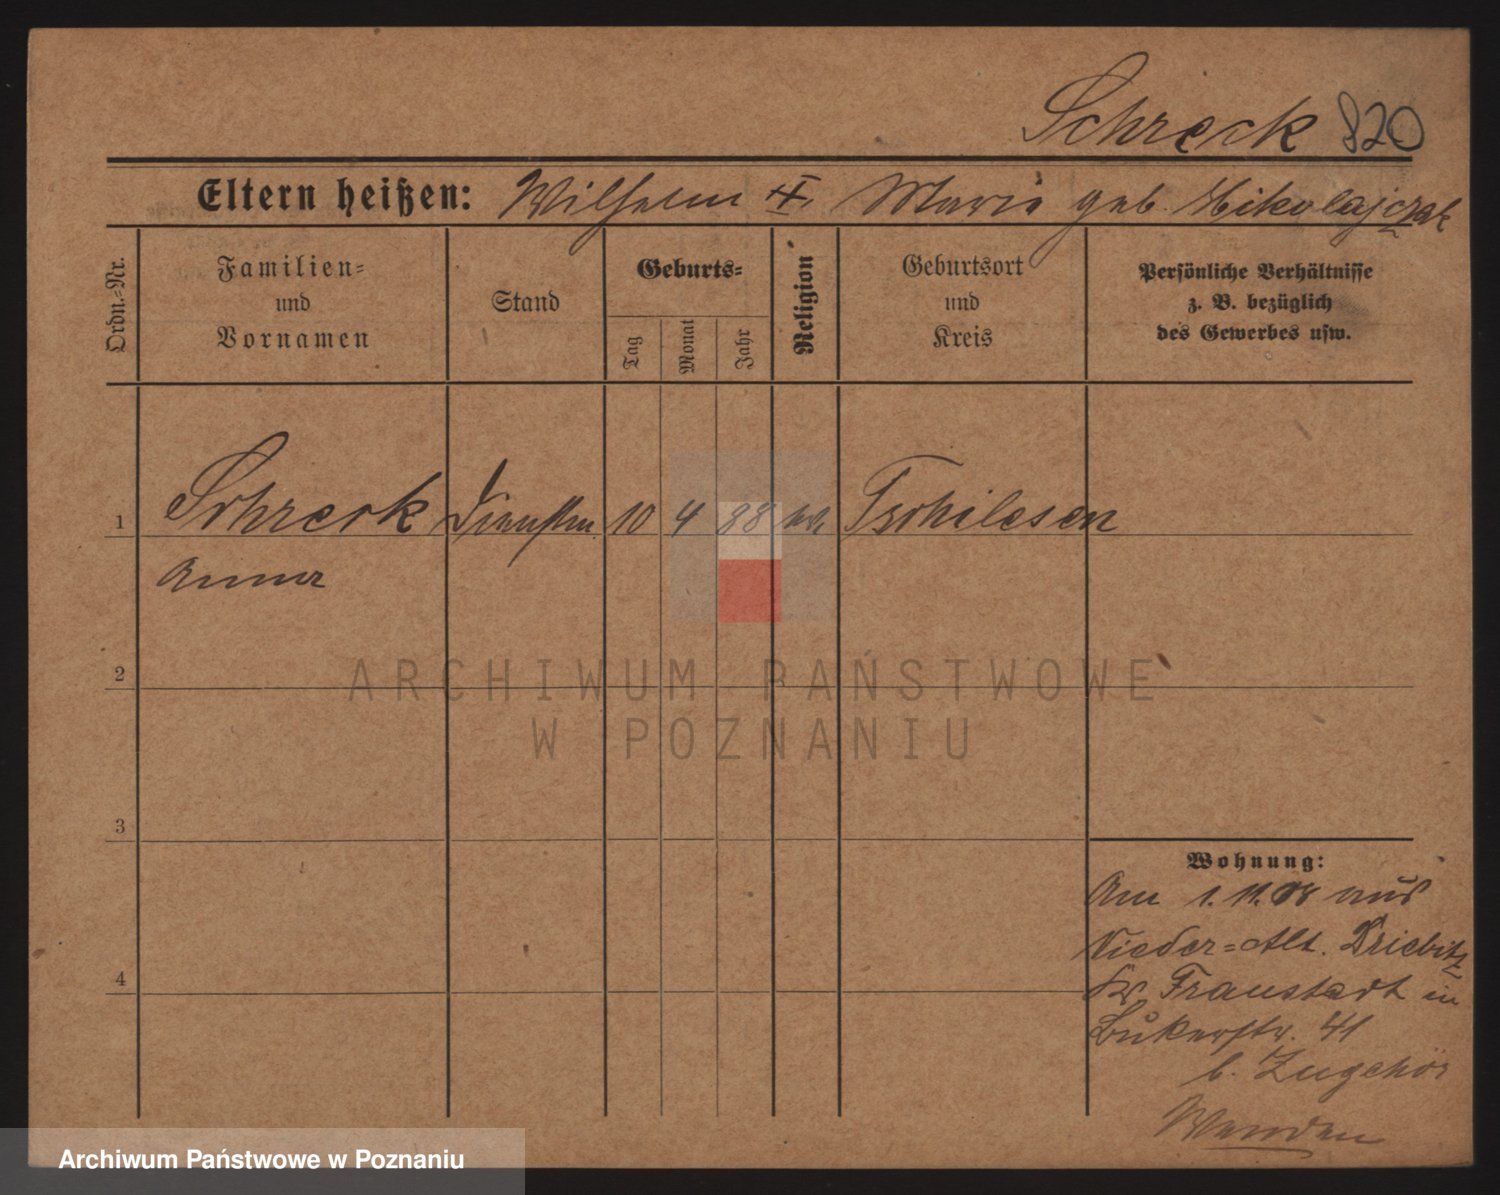 Schreck 820
Eltern heißen: Wilhelm Marie geb. Mikolajczak
Ordn.=Nr.
Familien=
und
Vornamen
Stand
Geburts=
Tag
Monat
Jahr
Religion
Geburtsort
und
Kreis
Persönliche Verhältnisse
z. B. bezüglich
des Gewerbes usw.
1 Schreck Dienstm. 10 4 88 kth. Tschilesen
Anna
2
ARCHIWUM PAŃSTWOWE
W POZNANIU
3
Wohnung:
Am 1.11.08 aus
Nieder=Alt. Driebitz
4
Kr. Fraustadt in
Lukerstr. 41
b. Zugehör
Wenden
Archiwum Państwowe w Poznaniu